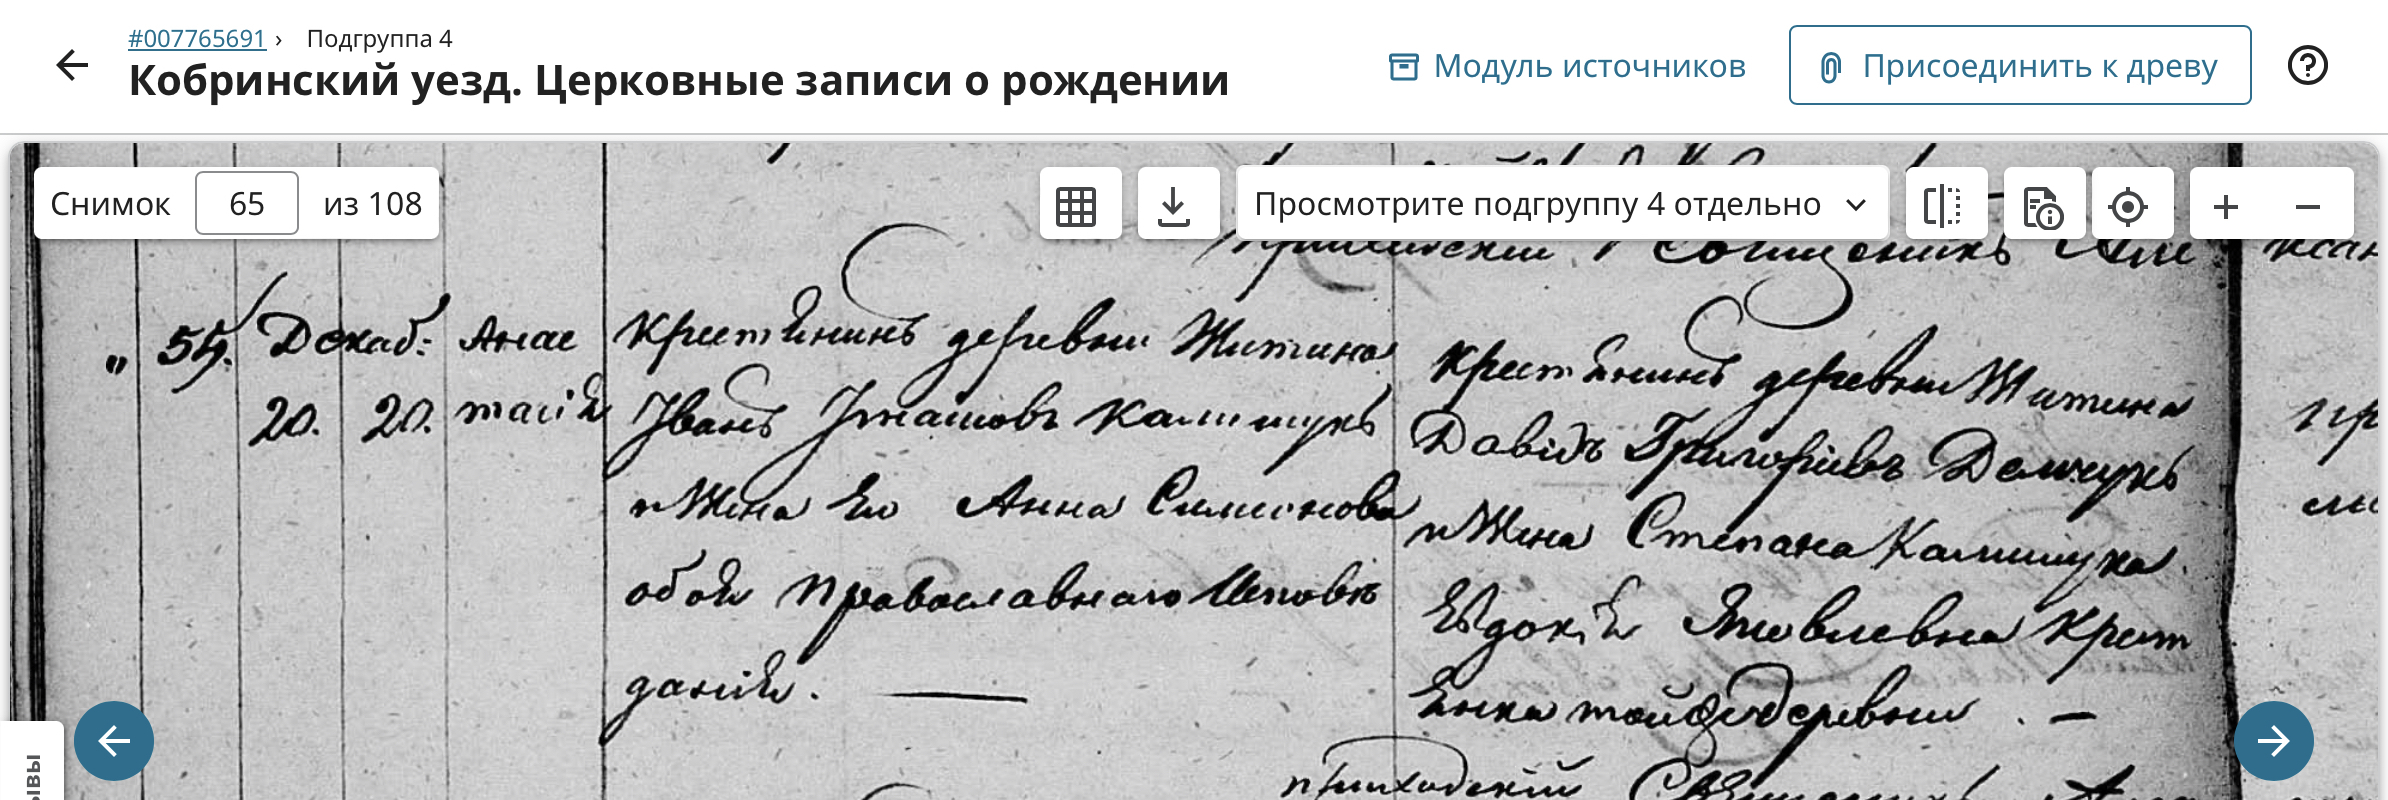 #007765691 › Подгруппа 4
Кобринский уезд. Церковные записи о рождении
Модуль источников
Присоединить к древу
Снимок 65 из 108
Просмотрите подгруппу 4 отдельно
Священникъ Але
„ 54. Декаб: Анас
20. 20. тасія
Крестянинъ деревни Житина
Іванъ Игнатовъ Калишукъ
и Жена Его Анна Симионова
обоя православнаго Исповѣ
данія. —
Крестянинъ деревни Житина
Давидъ Григоріевъ Демчукъ
и Жена Степана Калишука
Евдокія Яковлевна Крест
янка той же деревни . —
приходскій Священникъ
ывы